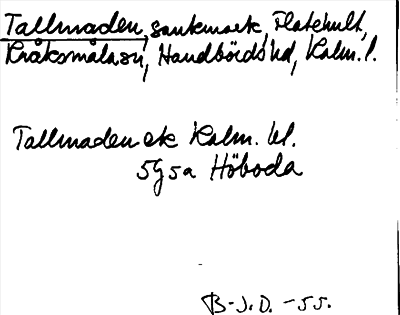 Tallmaden, sankmark, Flatehult,
Kråksmåla sn, Handbörds hd, Kalm. l.
Tallmaden ek Kalm. bl.
5G5a Höboda
B-J.D. -55.